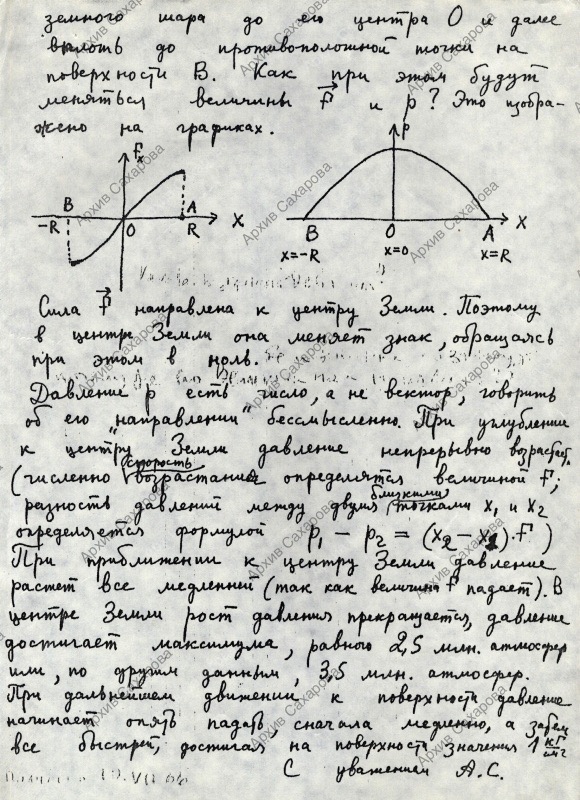 земного шара до его центра О и далее
вплоть до противоположной точки на
поверхности В. Как при этом будут
меняться величины F и p? Это изобра-
жено на графиках.
Fx
p
B
A
-R
O
R
X
B
O
A
X
x=-R
x=0
x=R
Сила F направлена к центру Земли. Поэтому
в центре Земли она меняет знак, обращаясь
при этом в ноль.
Давление p есть число, а не вектор, говорить
об его "направлении" бессмысленно. При углублении
к центру Земли давление непрерывно возрастает,
(численно скорость возрастания определятся величиной F;
разность давлений между двумя близкими точками x1 и x2
определяется формулой p1 - p2 = (x2 - x1)·F)
При приближении к центру Земли давление
растет все медленней (так как величина F падает). В
центре Земли рост давления прекращается, давление
достигает максимума, равного 2,5 млн. атмосфер
или, по другим данным, 3,5 млн. атмосфер.
При дальнейшем движении к поверхности давление
начинает опять падать, сначала медленно, а затем
все быстрей, достигая на поверхности значения 1 кг/см²
С уважением А.С.
Архив Сахарова